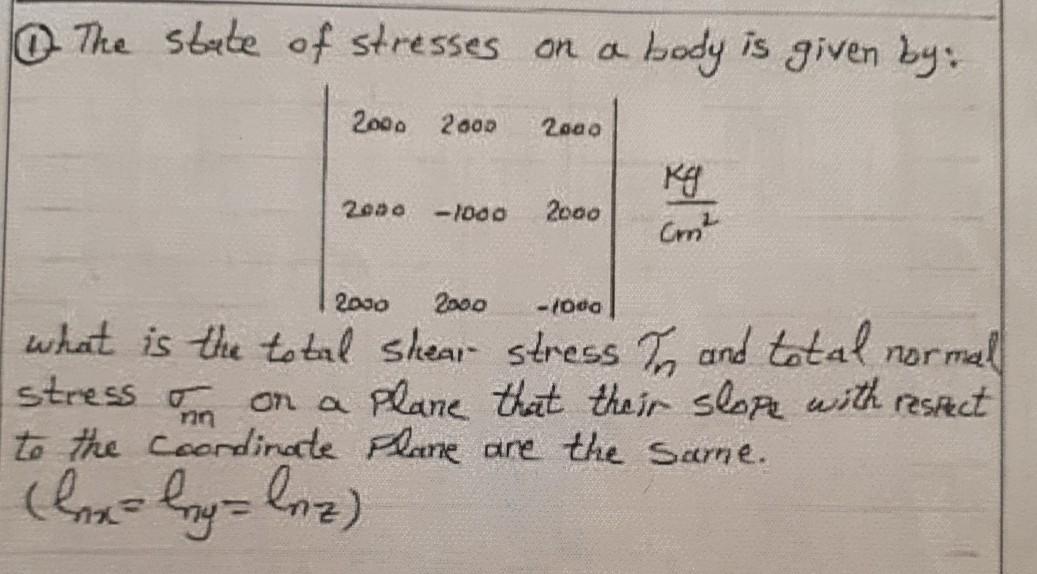 ① The state of stresses on a body is given by:
2000 2000 2000
Kg
2000 -1000 2000
Cm²
2000 2000 -1000
what is the total shear stress Tn and total normal
stress σnn on a plane that their slope with respect
to the Coordinate Plane are the same.
(lnx = lny = lnz)